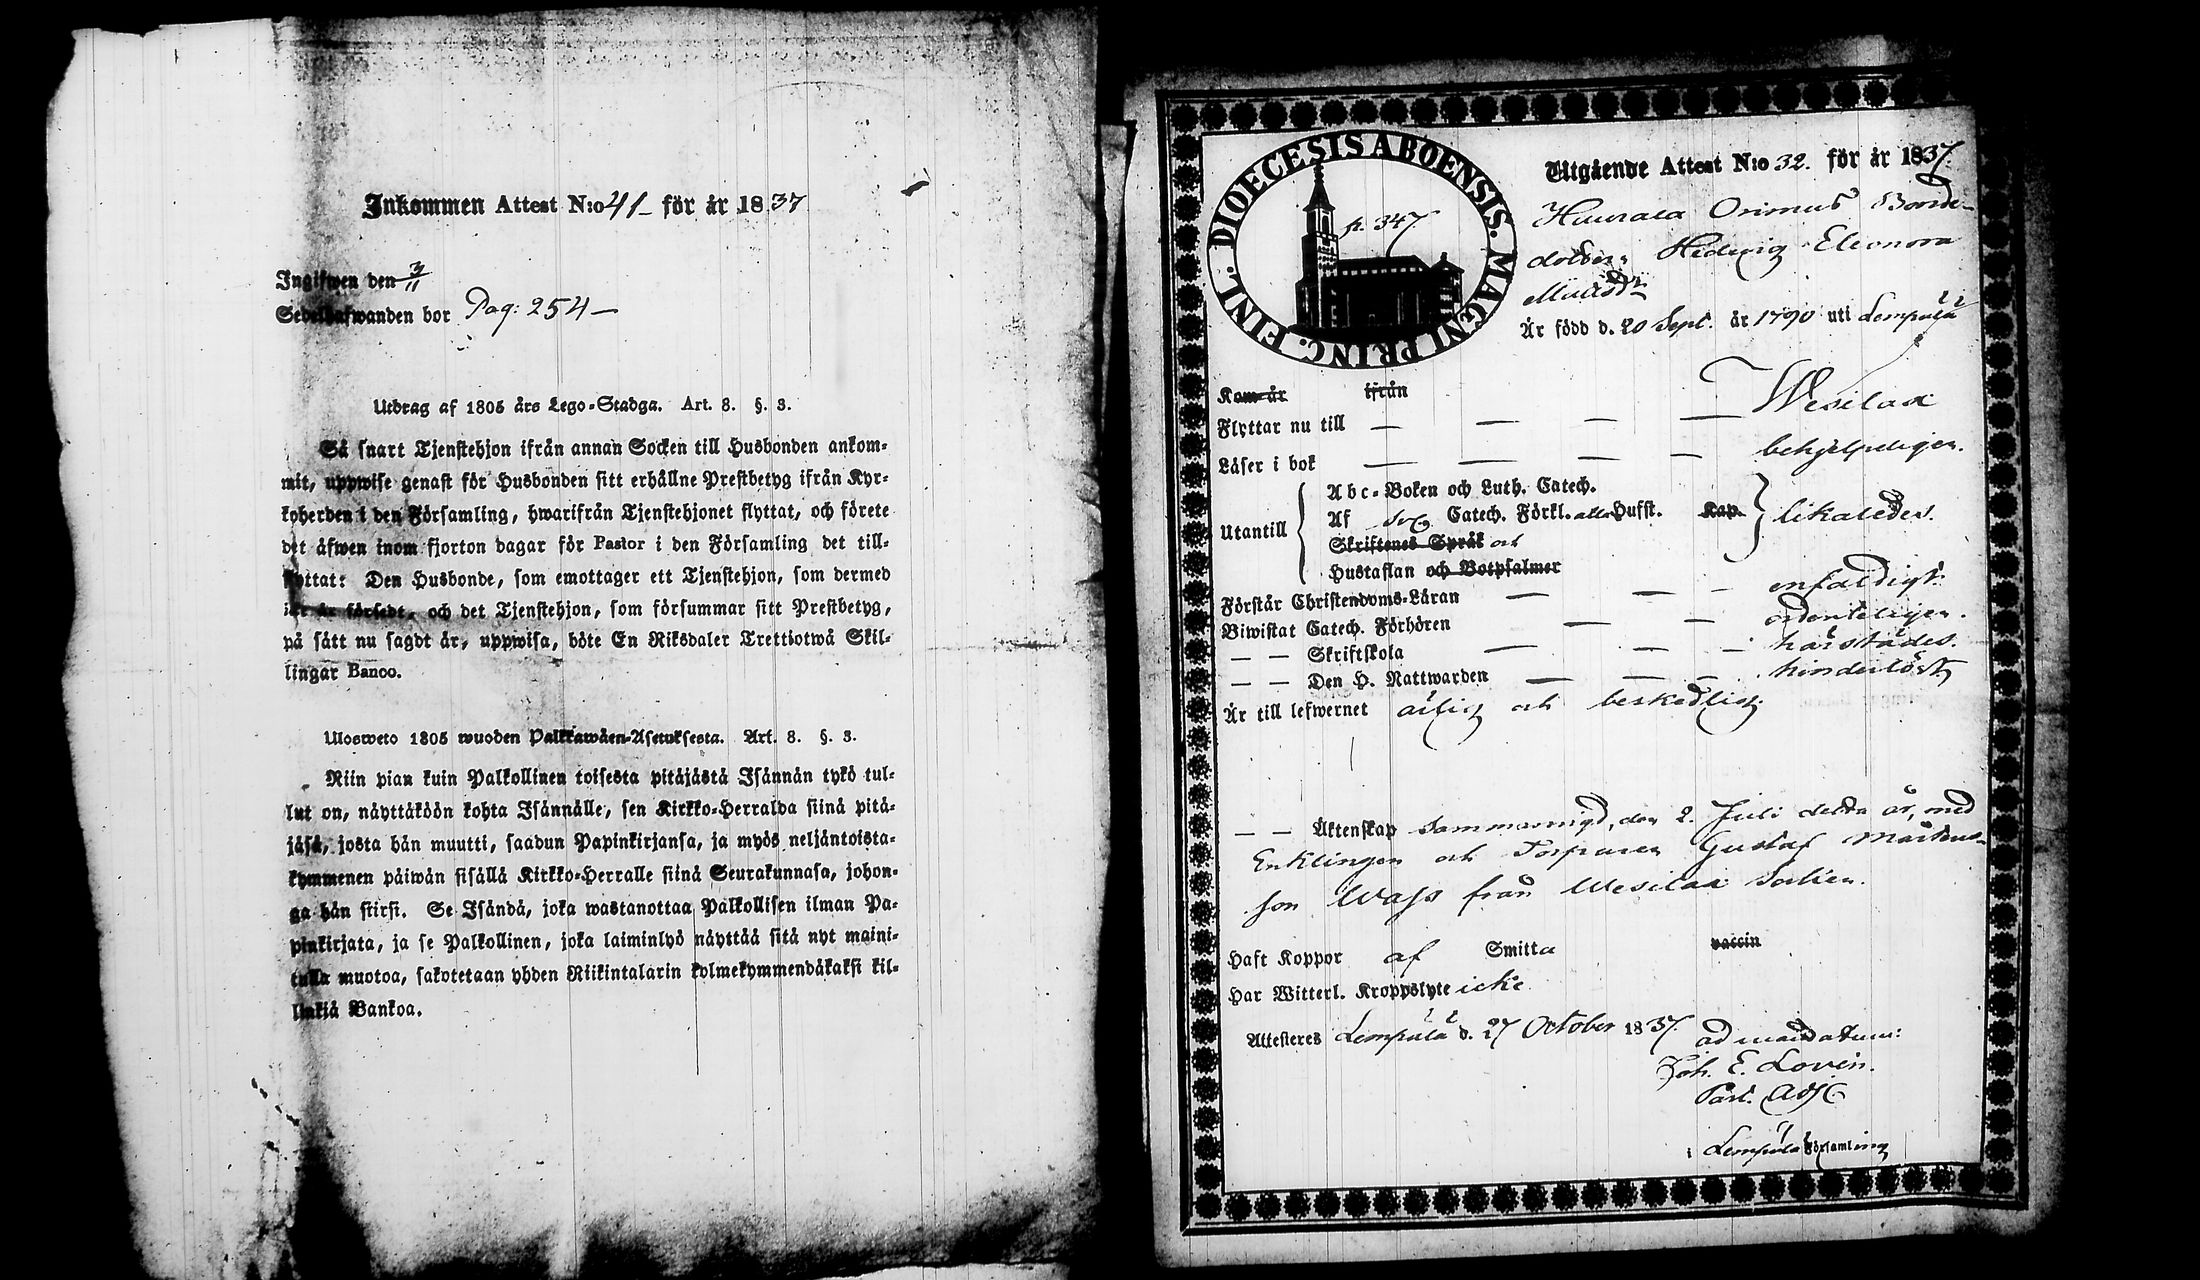 Inkommen Attest N:o 41 – för år 1837
Ingifwen den 3/11
Sedelhafwanden bor Pag: 254 –
Utdrag af 1805 års Lego-Stadga. Art. 8. §. 3.
Så snart Tjenstehjon ifrån annan Socken till Husbonden ankom-
mit, uppwise genast för Husbonden sitt erhållne Prestbetyg ifrån Kyr-
koherden i den Församling, hwarifrån Tjenstehjonet flyttat, och förete
det äfwen inom fjorton dagar för Pastor i den Församling det till-
flyttat: Den Husbonde, som emottager ett Tjenstehjon, som dermed
icke är försedt, och det Tjenstehjon, som försummar sitt Prestbetyg,
på sätt nu sagdt är, uppwisa, böte En Riksdaler Trettiotwå Skil-
lingar Banco.
Ulosweto 1805 wuoden Palkkawäen-Asetuksesta. Art. 8. §. 3.
Niin pian kuin Palkollinen toisesta pitäjästä Isännän tykö tul-
lut on, näyttäköön kohta Isännälle, sen Kirkko-Herralda siinä pitä-
jäsä, josta hän muutti, saadun Papinkirjansa, ja myös neljäntoista-
kymmenen päiwän sisällä Kirkko-Herralle siinä Seurakunnasa, johon-
ga hän siirsi. Se Isändä, joka wastanottaa Palkollisen ilman Pa-
pinkirjata, ja se Palkollinen, joka laiminlyö näyttää sitä nyt maini-
tulla muotoa, sakotetaan yhden Riikintalarin kolmekymmendäkaksi kil-
linkiä Bankoa.
DIOECESIS ABOENSIS. MAGNI PRINC. FINL.
p. 347
Utgående Attest N:o 32. för år 1837.
Orimus Bonde-
dottern Hedwig Eleonora
Är född d. 20 Sept. år 1790 uti Lempälä
Kom år ifrån
Flyttar nu till — — — — Wesilax
Läser i bok — — — — behjelpeligen.
Utantill
Abc-Boken och Luth. Catech.
Af Sv. Catech. Förkl. alla Hufst. Kap.
Skriftenes Språk och
Hustaflan och Botpsalmer
likaledes.
Förstår Christendoms-Läran — — — enfaldigt.
Biwistat Catech. Förhören — — ordenteligen.
— — Skriftskola — — — härstädes.
— — Den H. Nattwarden — — — hinderlöst
Är till lefwernet ärlig och beskedlig.
— — Äktenskap sammanvigd, den 2. Juli detta år, med
Enklingen och Torparen Gustaf Mårtens-
son Wass från Wesilax Socken.
Haft Koppor af Smitta vaccin
Har Witterl. Kroppslyte icke
Attesteres Lempälä d. 27 October 1837.
ad mandatum:
Joh. E. Lovén.
Past. Adj.
i Lempälä Församling